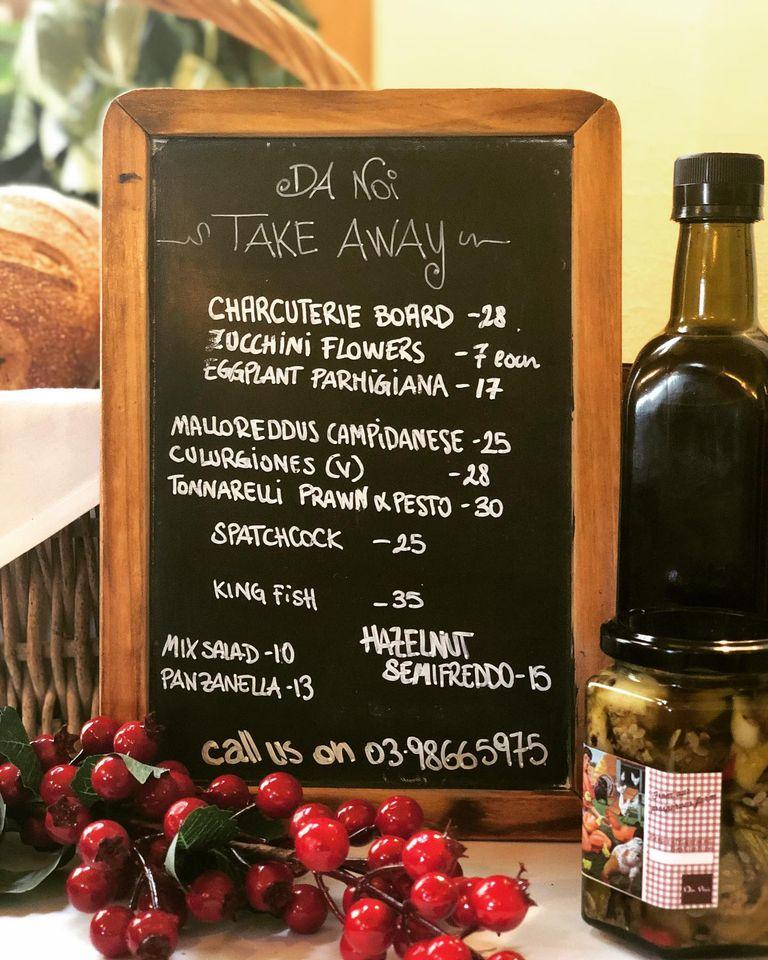 DA NOI
TAKE AWAY
CHARCUTERIE BOARD -28
ZUCCHINI FLOWERS -7 each
EGGPLANT PARMIGIANA -17
MALLOREDDUS CAMPIDANESE -25
CULURGIONES (V) -28
TONNARELLI PRAWN & PESTO -30
SPATCHCOCK -25
KING FISH -35
MIX SALAD -10
PANZANELLA -13
HAZELNUT
SEMIFREDDO -15
call us on 03-98665975